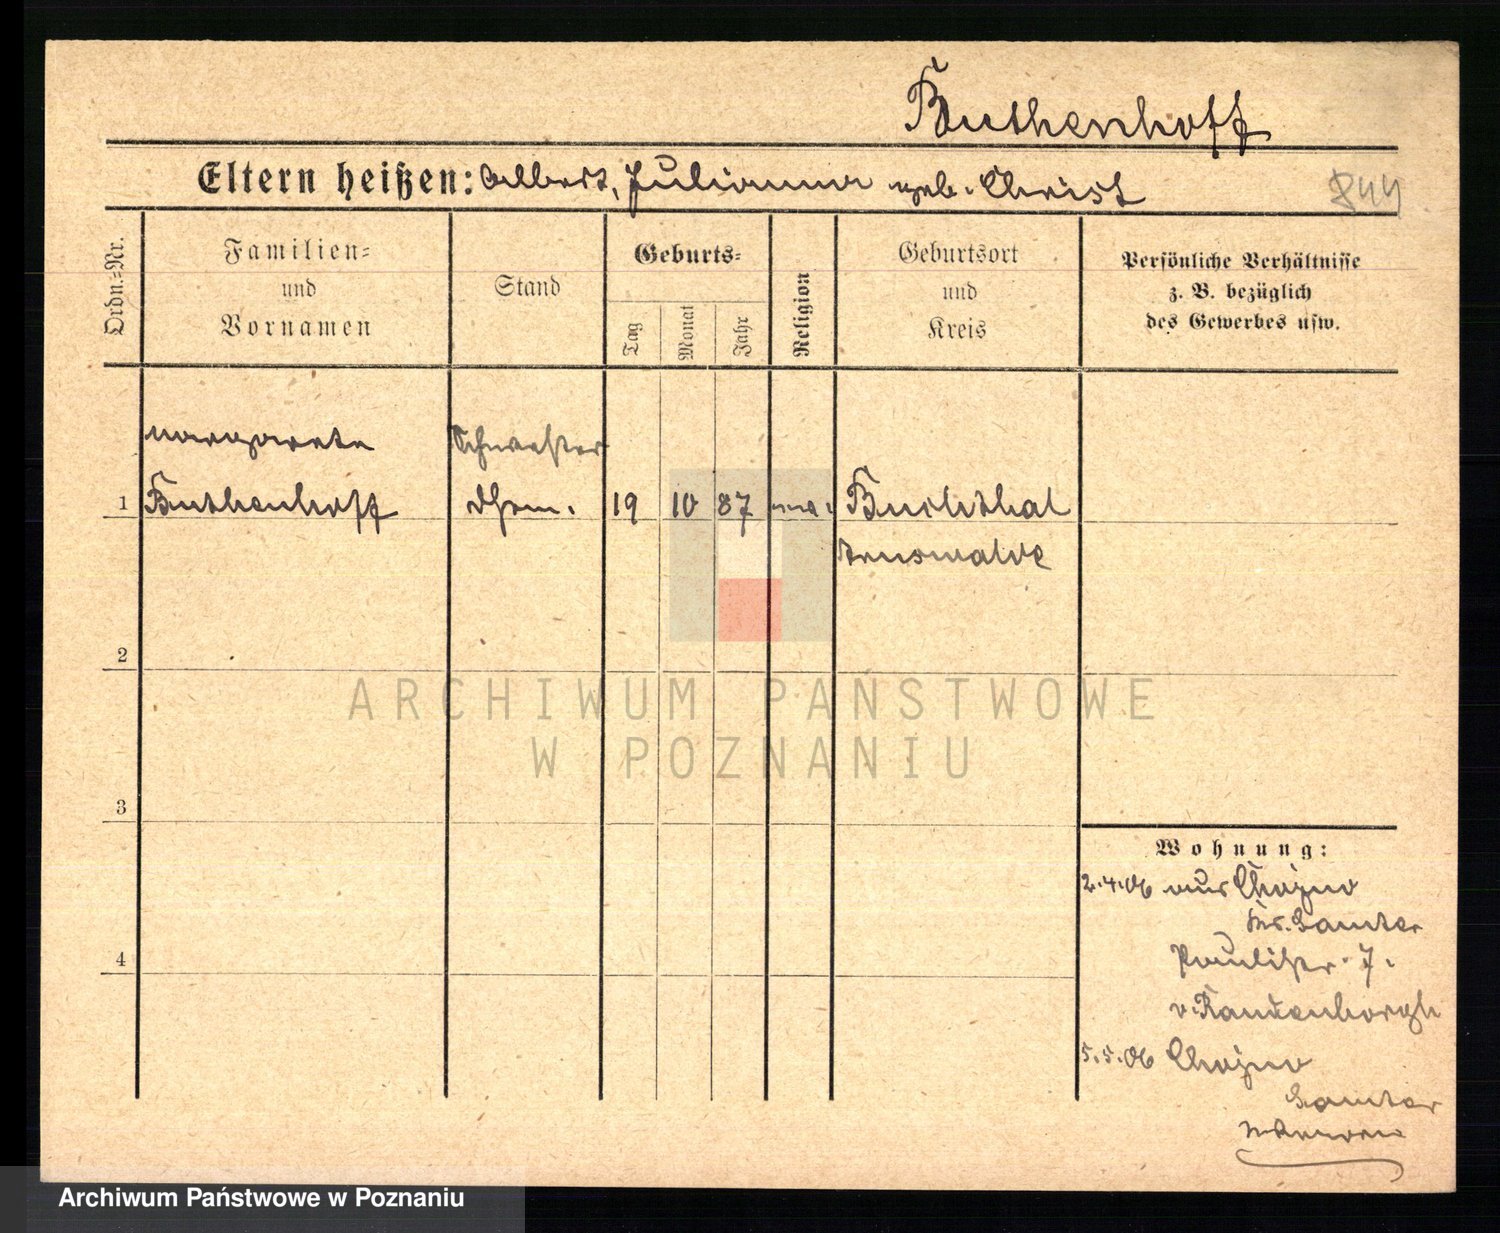 Buthenhoff
Eltern heißen: Albert, Julianna geb. Christ
844
Ordn.=Nr.
Familien=
und
Vornamen
Stand
Geburts=
Tag
Monat
Jahr
Religion
Geburtsort
und
Kreis
Persönliche Verhältnisse
z. B. bezüglich
des Gewerbes usw.
Margarete
Schwester
1 Buthenhoff
19 10 87
Buchthal
Arnswalde
2
3
4
ARCHIWUM PAŃSTWOWE
W POZNANIU
Wohnung:
2.4.06 aus Chojno
Kr. Samter
Paulistr. 7.
v. Randenborgh
5.5.06 Chojno
Samter
Archiwum Państwowe w Poznaniu